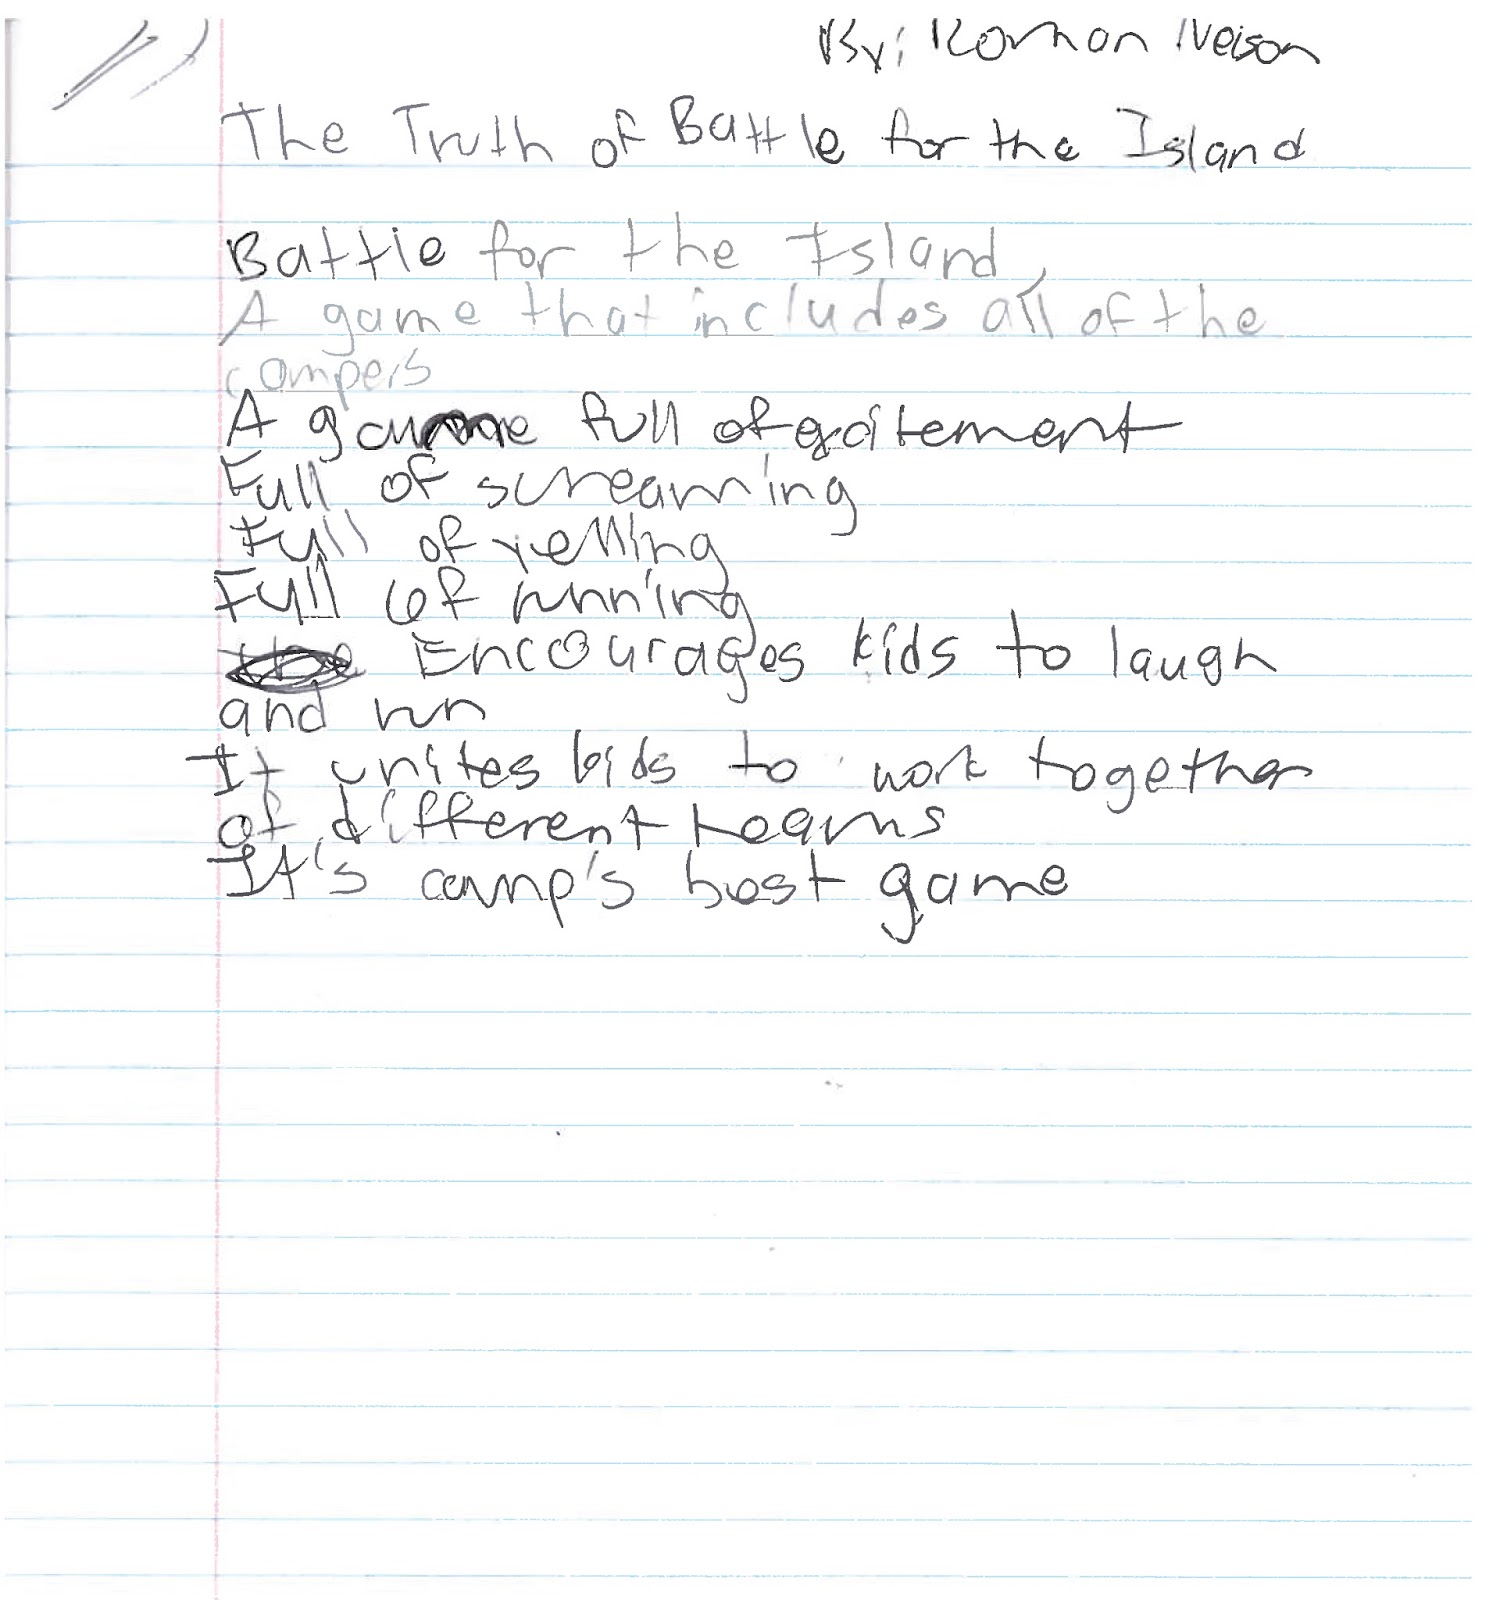 By: Roman Nelson
The Truth of Battle for the Island
Battle for the Island,
A game that includes all of the
campers
A game full of exitement
Full of screaming
Full of yelling
Full of running
Encourages kids to laugh
and run
It unites kids to work together
of different teams
It's camp's best game